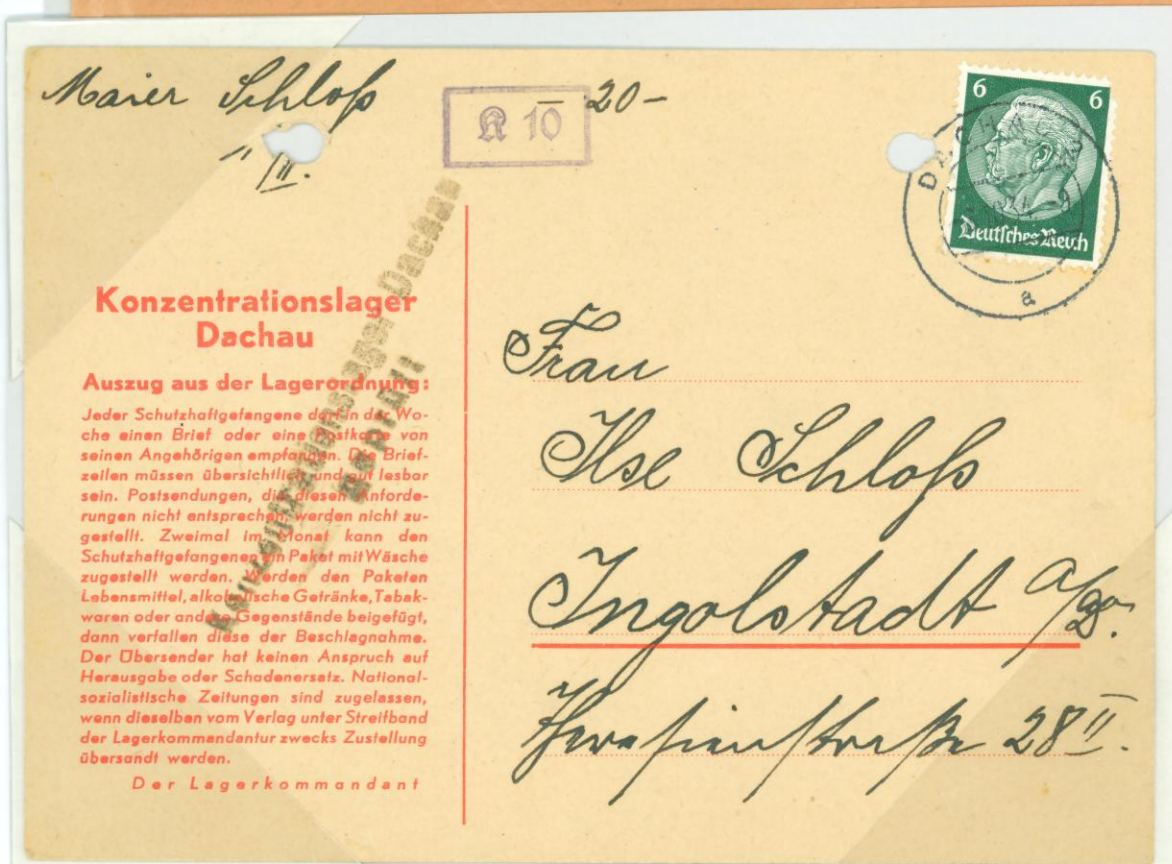 Maier Schloß
1/II.
K 10
20-
6 6
Deutsches Reich
DACHAU
a
Konzentrationslager
Dachau
Auszug aus der Lagerordnung:
Jeder Schutzhaftgefangene darf in der Wo-
che einen Brief oder eine Postkarte von
seinen Angehörigen empfangen. Die Brief-
zeilen müssen übersichtlich und gut lesbar
sein. Postsendungen, die diesen Anforde-
rungen nicht entsprechen, werden nicht zu-
gestellt. Zweimal im Monat kann den
Schutzhaftgefangenen ein Paket mit Wäsche
zugestellt werden. Werden den Paketen
Lebensmittel, alkoholische Getränke, Tabak-
waren oder andere Gegenstände beigefügt,
dann verfallen diese der Beschlagnahme.
Der Übersender hat keinen Anspruch auf
Herausgabe oder Schadenersatz. National-
sozialistische Zeitungen sind zugelassen,
wenn dieselben vom Verlag unter Streifband
der Lagerkommandantur zwecks Zustellung
übersandt werden.
Der Lagerkommandant
Konzentrationslager Dachau
Geprüft
Frau
Ilse Schloß
Ingolstadt a/Do.
Theresienstraße 28 II.